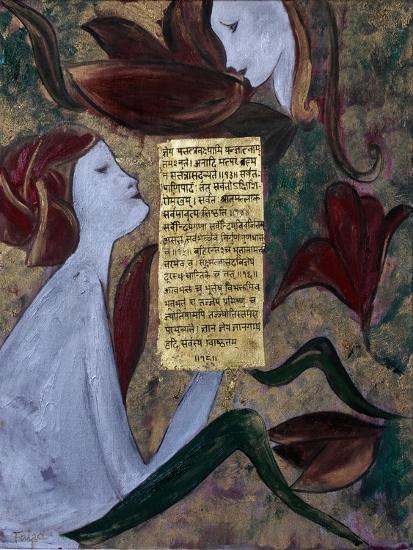 ज्ञेयं यत्तत्प्रवक्ष्यामि यज्ज्ञात्वाम्
तमश्नुते। अनादि मत्परं ब्रह्म
न सत्तन्नासदुच्यते॥१३॥ सर्वतः
पाणिपादं तत् सर्वतोऽक्षिशि
रोमुखम्। सर्वतः श्रुतिमल्लोके
सर्वमावृत्य तिष्ठति॥१४॥
सर्वेन्द्रियगुणा सर्वेन्द्रियविवर्जितम्
असक्तं सर्वभृच्चैव निर्गुणं गुणभोक्तृ
च॥१५॥ बहिरन्तश्च भूतानामच
रमेव च। सूक्ष्मत्वात्तदविज्ञेयं
दूरस्थं चान्तिके च तत्॥१६॥
अविभक्तं च भूतेषु विभक्तमिव
भूतभर्तृ च तज्ज्ञेयं ग्रसिष्णु च
ज्योतिषामपि तज्ज्योतिस्तमसः
परमुच्यते। ज्ञानं ज्ञेयं ज्ञानगम्यं
हृदि सर्वस्य विष्ठितम्
॥१८॥
Faiza